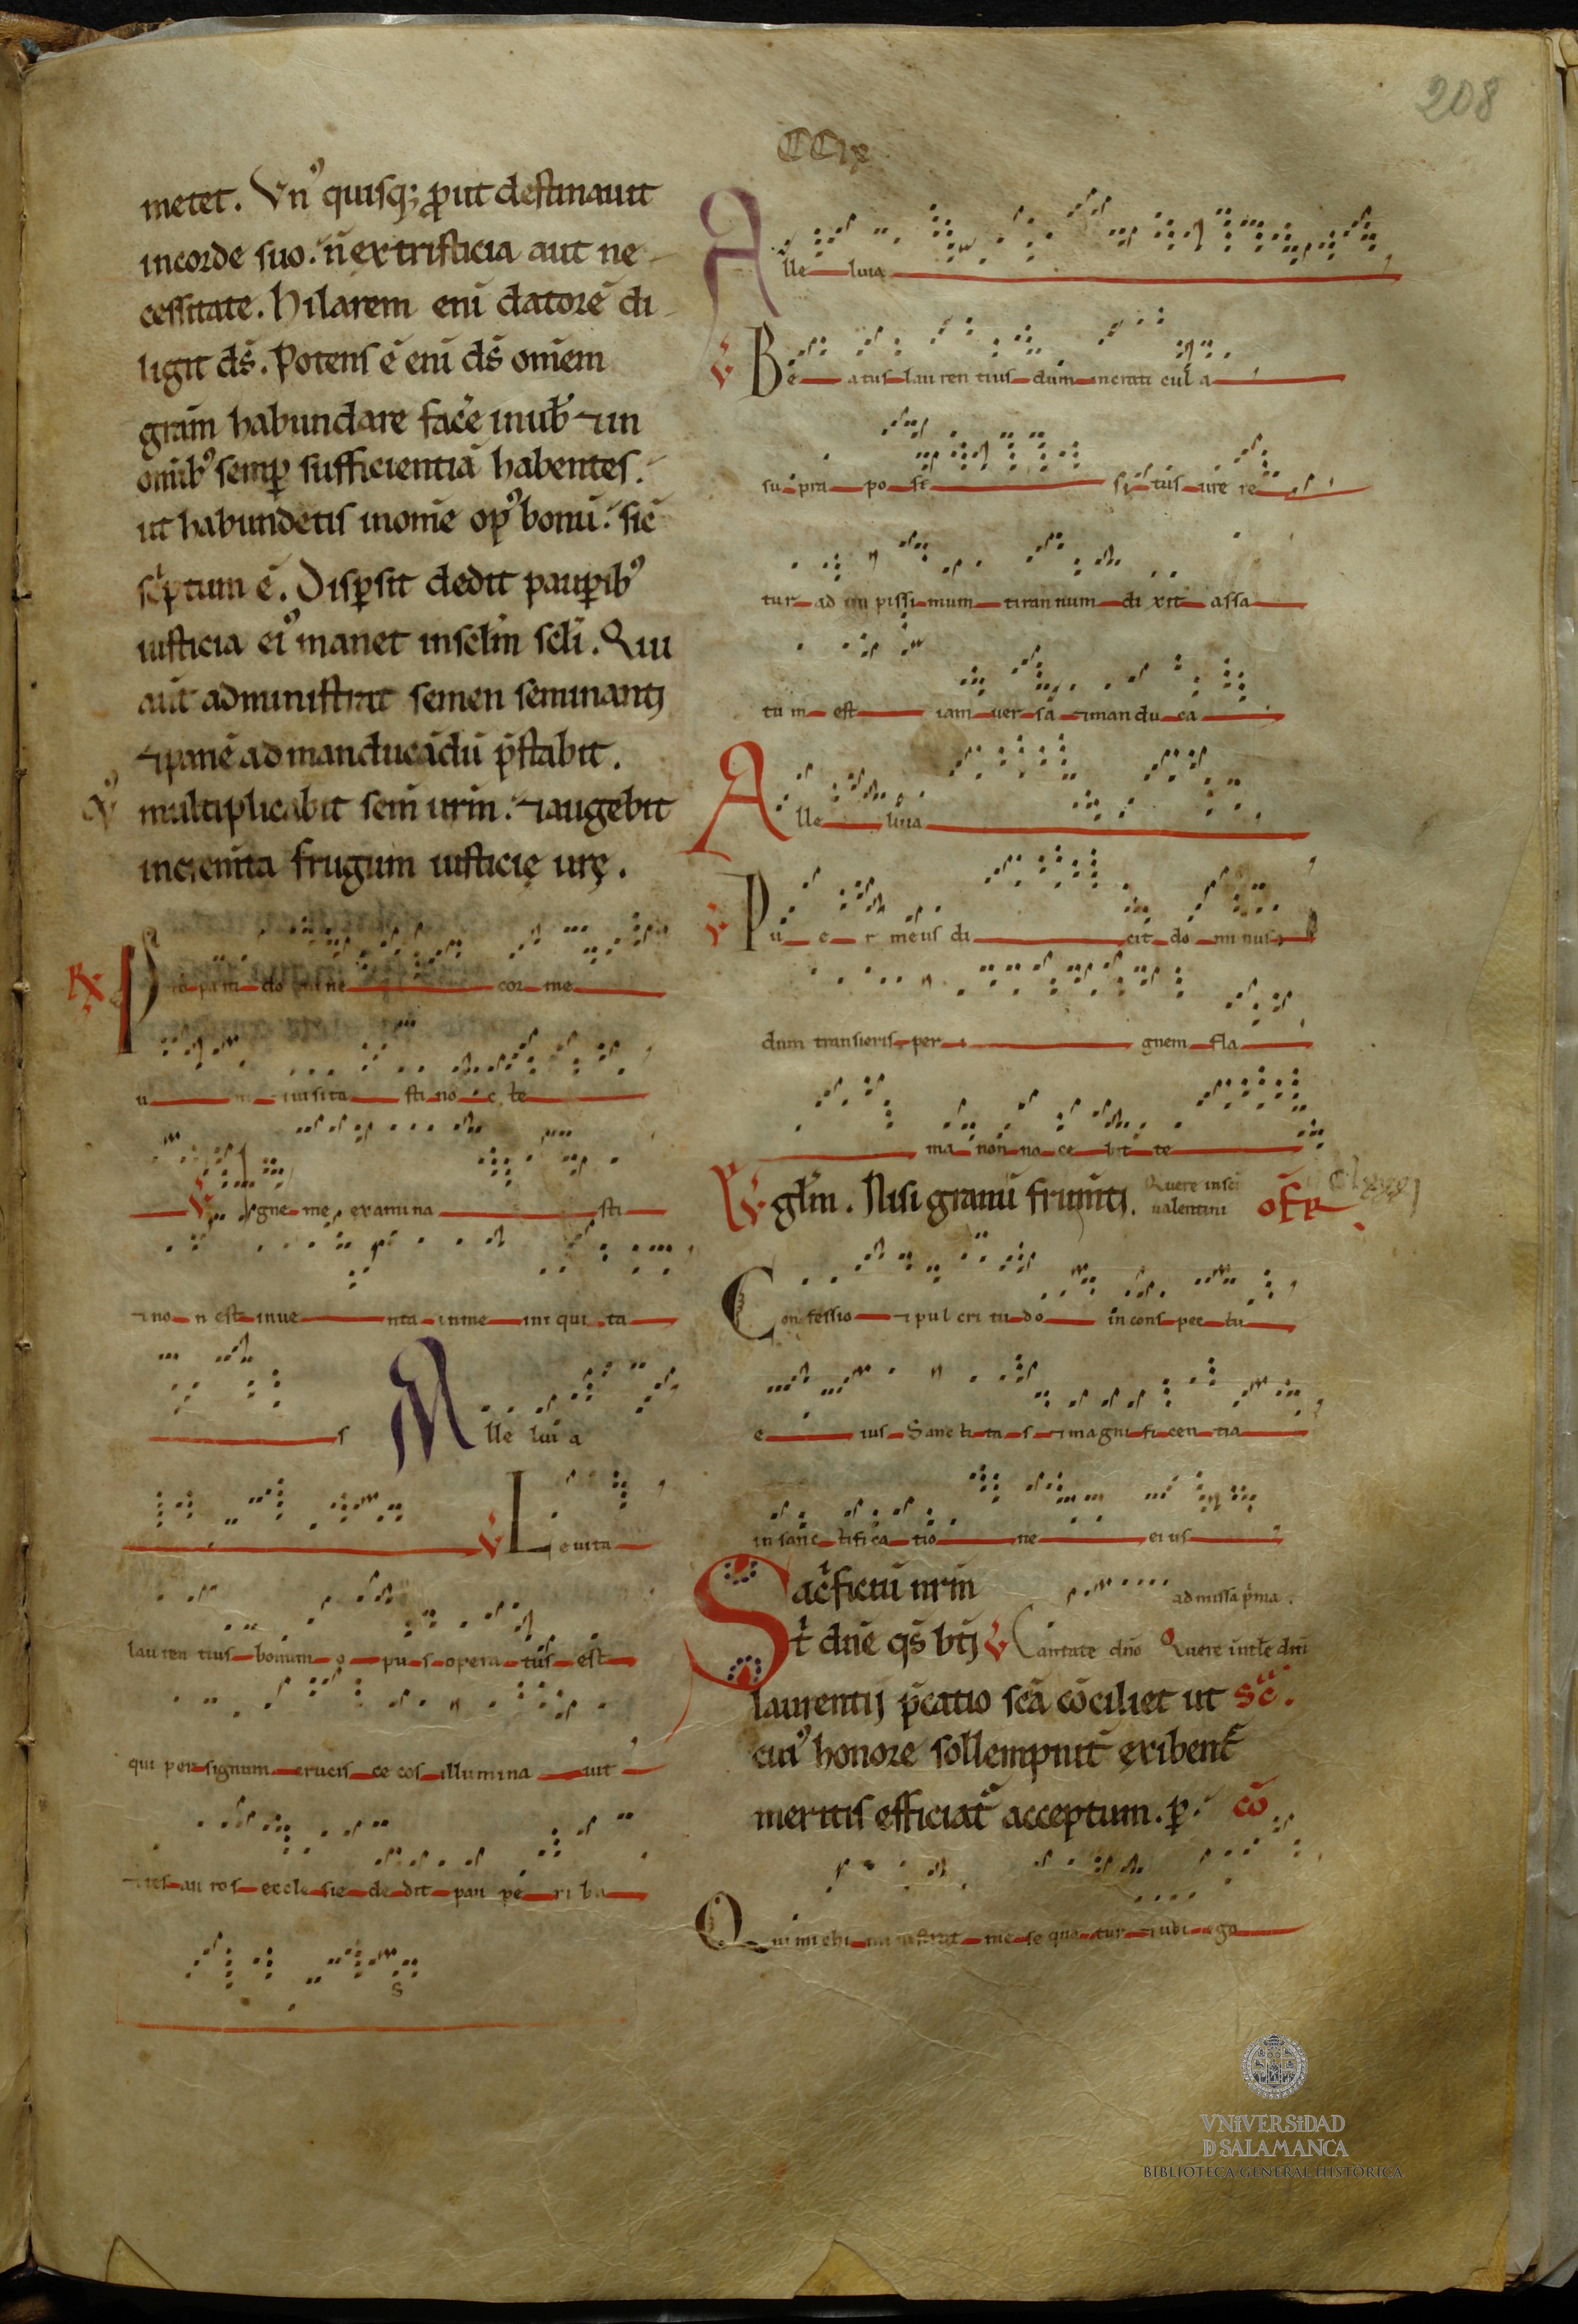 208
CCix
metet. Vn᾿ quisq; ꝓut destinauit
incorde suo. n̄ extristicia aut ne
cessitate. Hilarem eni datorē di
ligit ds̄. Potens ē eni ds̄ om̄em
gram̄ habundare facē inuob̄ ⁊ in
omib᾿ semꝑ sufficientiā habentes.
ut habundetis inom̄e opꝰ bonū. sic̄
sc̄ptum ē. Disꝑsit dedit pauꝑib᾿
iusticia ei᾿ manet insclm̄ scli. Qui
aut̄ administrat semen seminanti
⁊ panē ad manducādū p̄stabit.
⁊ multiplicabit sem̄ urm̄. ⁊ augebit
incremta frugum iusticię urę.
R̸ Pro basti do mi ne cor me
u m ⁊ uisita sti no c te
V̸ Igne me examina sti
⁊ no n est inue nta inme ini qui ta
s A lle lui a
V̸ L euita
lauren tius bonum o pu s opera tus est
qui per signum crucis ce cos illumina uit
⁊ tes au ros eccle sie de dit pau pe ri bu
s
A lle luia
V̸ Be atus lauren tius dum incrati cul a
su pra po si si tus ure re
tur ad im pissi mum tirannum di xit assa
tu m est iam uer sa ⁊ man du ca
A lle luia
V̸ Pu e r meus di cit do mi nus
dum transieris per i gnem fla
ma non no ce bit te
Eglm̄. Nisi granū frum̄ti. Quere insci
ualentini ofr̄
Con fessio ⁊ pul cri tu do in cons pec tu
e ius Sanc ti ta s ⁊ magni fi cen tia
in sanc tifica tio ne eius
Sac̄ficiū nrm̄ ad missa p̄ma.
t̄ dn̄e qs̄ bti V̸ Cantate dn̄o Quere int̄le dn̄i
laurentij p̄catio scā cōciliet ut Sc̄.
cui᾿ honore sollempnit̄ exibent᾿
meritis efficiat᾿ acceptum. ꝑ. cō
Qui michi ministrat me se qua tur ⁊ ubi ego
VNiVERSiDAD
D SALAMANCA
BIBLIOTECA GENERAL HISTÓRICA